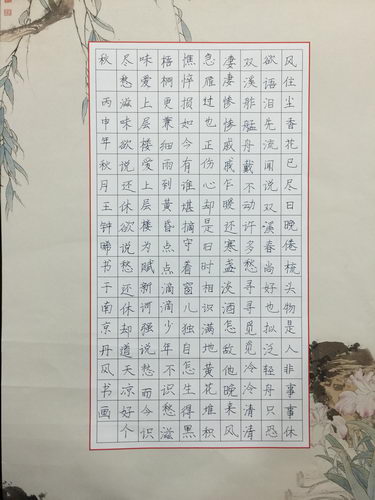 风住尘香花已尽日晚倦梳头物是人非事事休
欲语泪先流闻说双溪春尚好也拟泛轻舟只恐
双溪舴艋舟载不动许多愁寻寻觅觅冷冷清清
凄凄惨惨戚戚乍暖还寒盏淡酒怎敌他晚来风
急雁过也正伤心却是旧时相识满地黄花堆积
憔悴损如今有谁堪摘守着窗儿独自怎生得黑
梧桐更兼细雨到黄昏点点滴滴少年不识愁滋
味爱上层楼爱上层楼为赋新词强说愁而今识
尽愁滋味欲说还休欲说愁还休却道天凉好个
秋 丙申年秋月王钟晞书于南京丹风书画